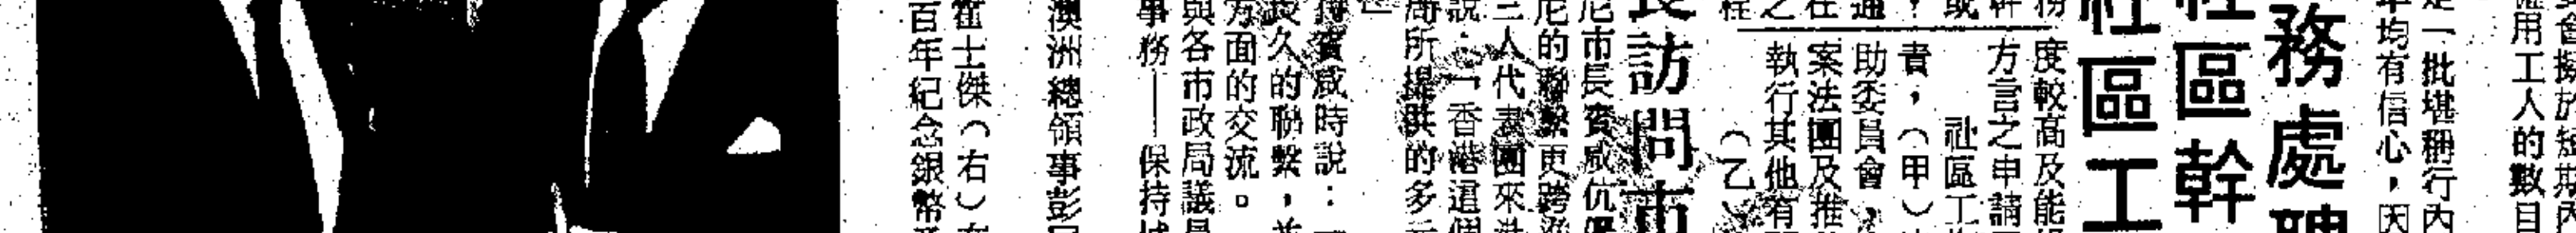 用工人的數目
是一批堪稱行內
年均有信心，因
務處聘
社區幹
社區工
度較高及能
方言之申請
社區工
責，（甲）
助委員會，
案法團及推
執行其他有
（乙）
長訪問市
尼市長賓威伉
尼的聯繫更跨
三人代表團來
說：「香港這個
局所提供的多
待賓威時說：
久的聯繫，並
方面的交流。
與各市政局議員
事務——保持
澳洲總領事彭
霍士傑（右）在
百年紀念銀幣